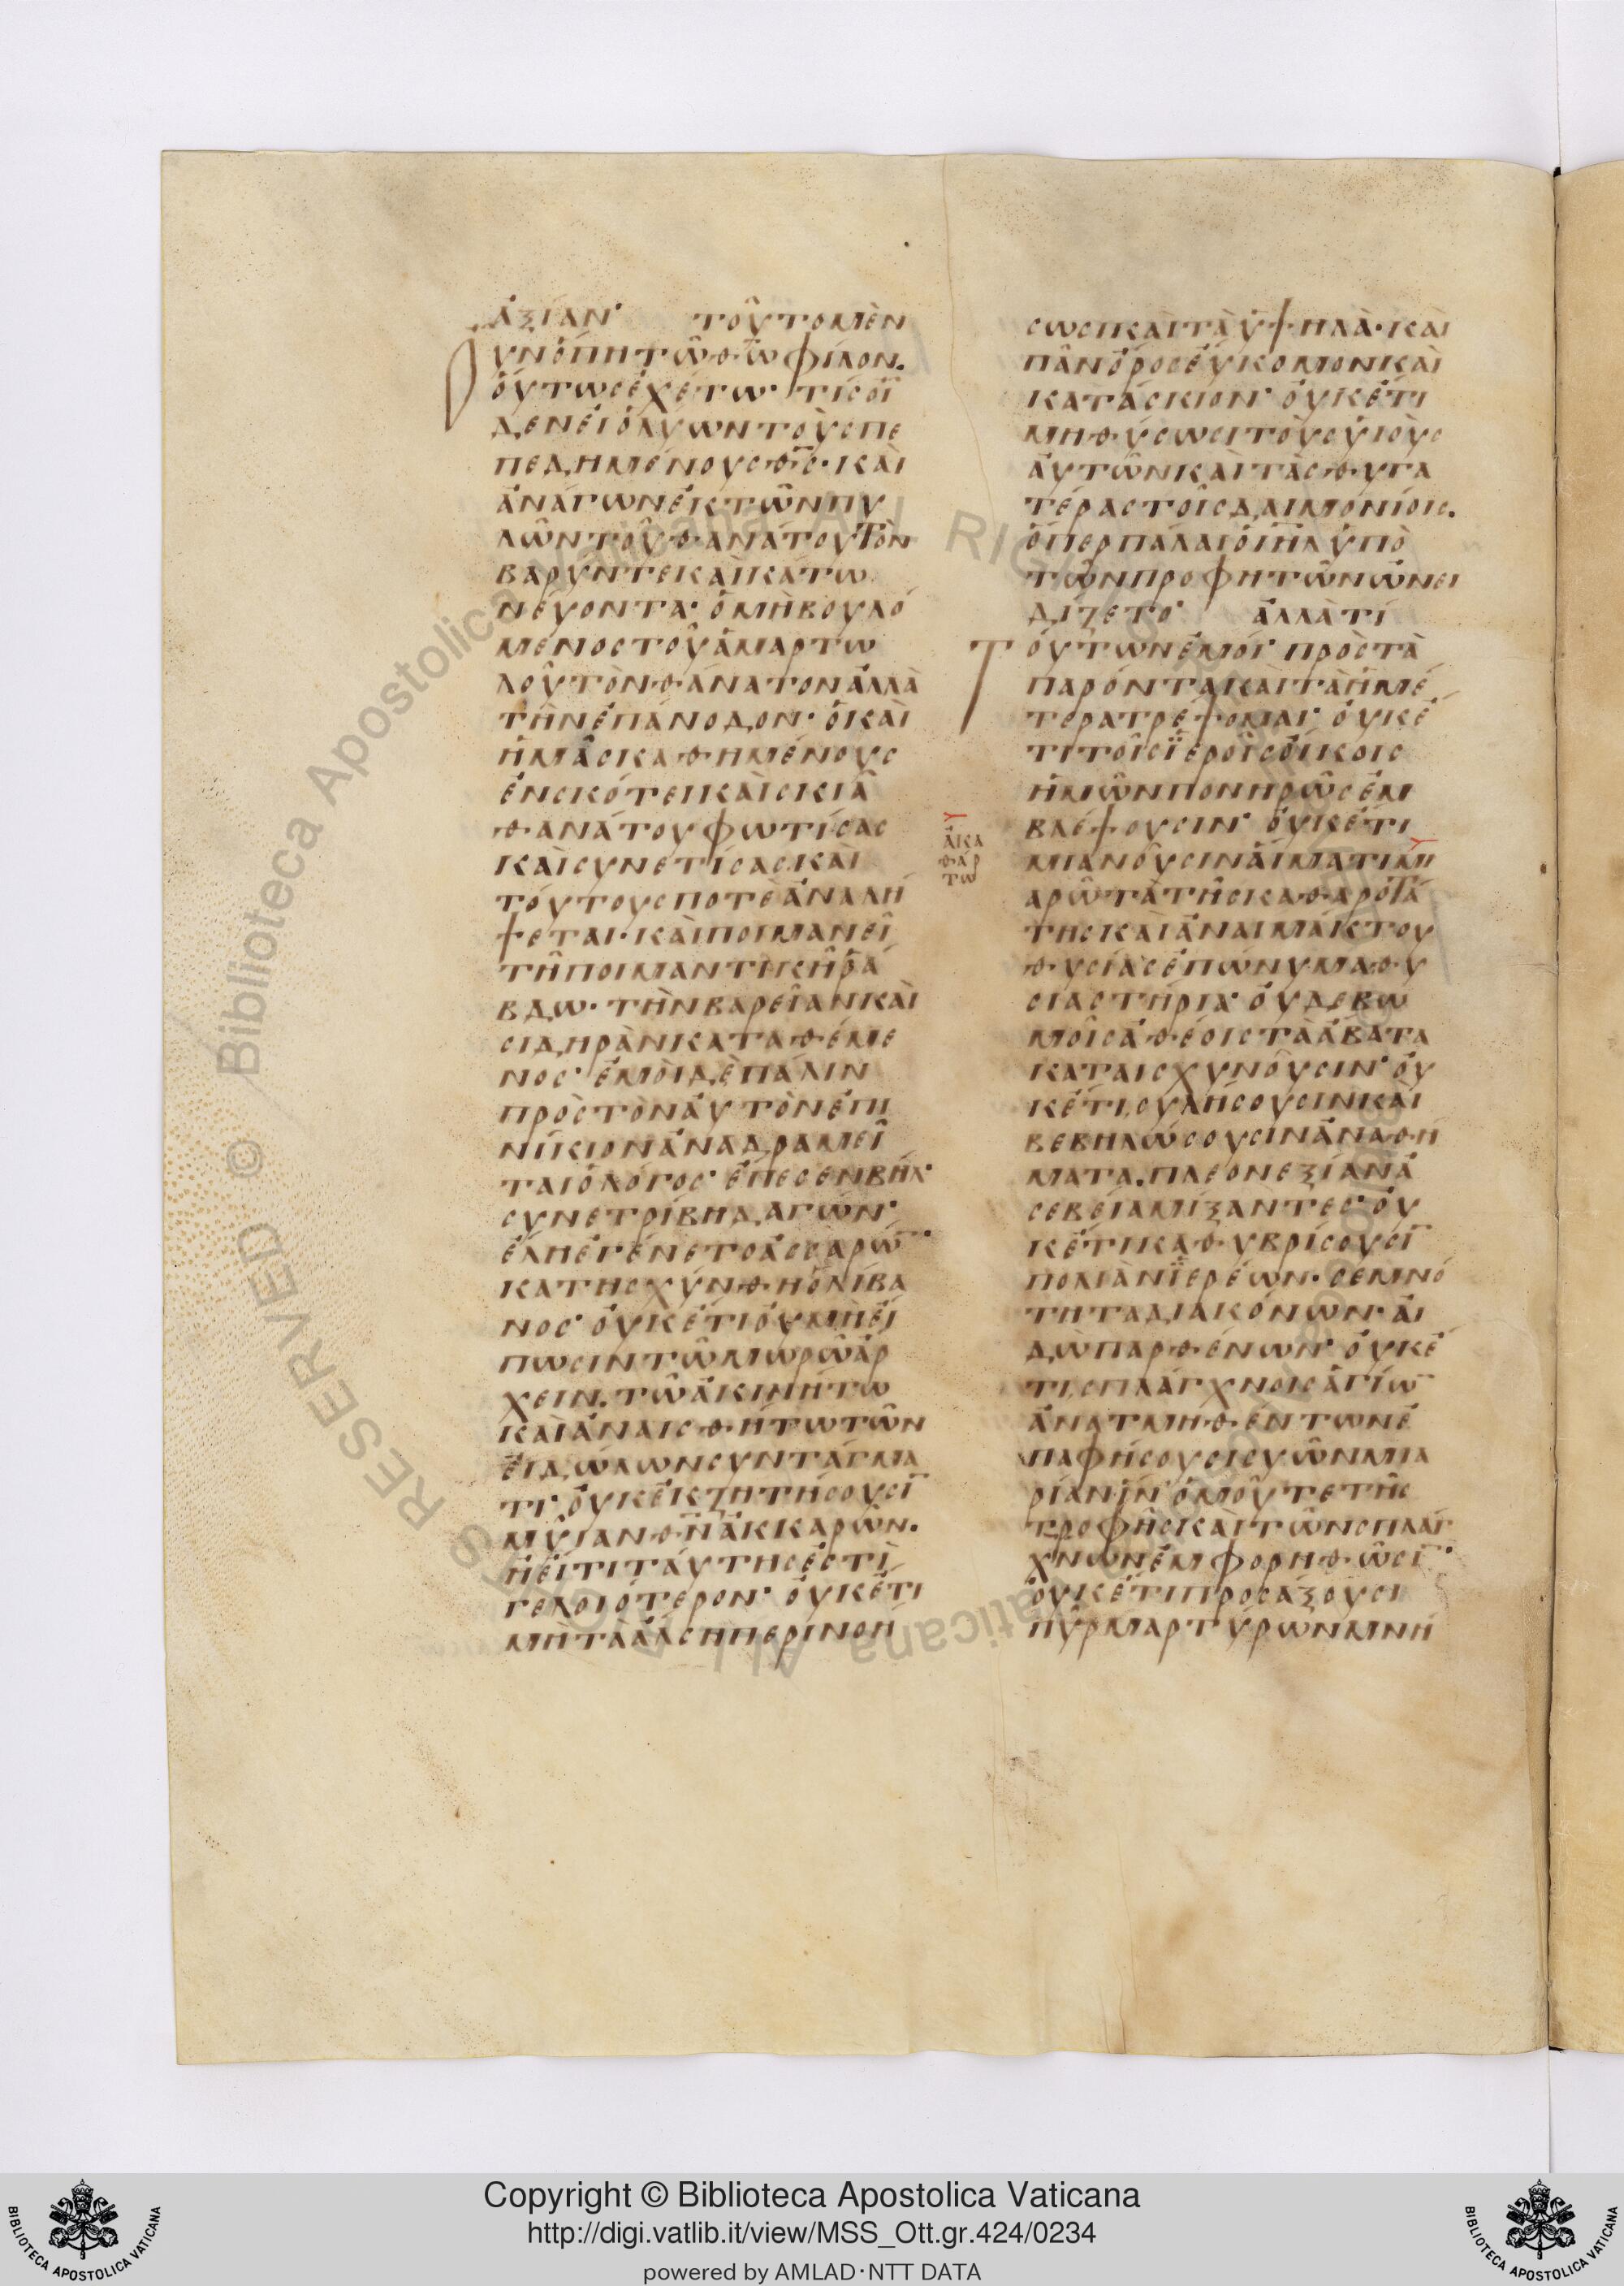 ἀξίαν· τοῦτο μὲν
οὖν ὅπη τῶ θῶ φίλον.
οὕτως ἐχέτω· τίς οἶ
δεν εἰ ὁ λύων τοὺς πε
πεδημένους θς· καὶ
ἀνάγων ἐκ τῶν πυ
λῶν τοῦ θανάτου τὸν
βαρύν τε καὶ κάτω
νεύοντα· ὁ μὴ βουλό
μενος τοῦ ἁμαρτω
λοῦ τὸν θάνατον ἀλλὰ
τὴν ἐπάνοδον· ὁ καὶ
ἡμᾶς καθημένους
ἐν σκότει καὶ σκιᾶ
θανάτου φωτίσας
καὶ συνετίσας καὶ
τούτους ποτὲ ἀναλή
ψεται· καὶ ποιμανεῖ
τῆ ποιμαντικῆ ῥά
βδω· τὴν βαρεῖαν καὶ
σιδηρὰν καταθέμε
νος· ἐμοὶ δὲ πάλιν
πρὸς τὸν αὐτὸν ἐπι
νίκιον ἀναδραμεῖ
ται ὁ λόγος· ἔπεσεν βήλ·
συνετρίβη δαγών·
ἕλη ἐγένετο ἀσσαρών·
κατησχύνθη ὁ λίβα
νος· οὐκέτι οὐ μὴ εἴ
πωσιν τῶ μωρῶ ἄρ
χειν. τῶ ἀκινήτω
καὶ ἀναισθήτω τῶν
εἰδώλων συντάγμα
τι· οὐκ ἐκζητήσουσῖ
μυῖαν θν ἀκκαρών.
ἢ εἴ τι ταύτης ἐστὶ
γελοιότερον· οὐκέτι
μὴ τὰ ἄλση περινοή
σωσι καὶ τὰ ὑψηλὰ· καὶ
πᾶν ὄρος εὔκομον καὶ
κατάσκιον· οὐκέτι
μὴ θύσωσι τοὺς υἱοὺς
αὐτῶν καὶ τὰς θυγα
τέρας τοῖς δαιμονίοις.
ὅπερ πάλαι ὁ ιηλ ὑπὸ
τῶν προφητῶν ὠνει
δίζετο· ἀλλὰ τί
τούτων ἐμοί· πρὸς τὰ
παρόντα καὶ τὰ ἡμέ
τερα τρέψομαι· οὐκέ
τι τοῖς ἱεροῖς οἴκοις
ἡμῶν πονηρῶς ἐμ
βλέψουσιν· οὐκέτι
μιανοῦσιν αἵματι μι
αρῶ τὰ τῆς καθαρωτά
της καὶ ἀναιμάκτου
θυσίας ἐπώνυμα θυ
σιαστήρια· οὐδὲ βω
μοῖς ἀθέοις τὰ ἄβατα
καταισχυνοῦσιν· οὐ
κέτι συλήσουσιν καὶ
βεβηλώσουσιν ἀναθή
ματα. πλεονεξίαν ἀ
σεβεία μίξαντες· οὐ
κέτι καθυβρίσουσῖ
πολιὰν ἱερέων· σεμνό
τητα διακόνων· αἰ
δὼ παρθένων· οὐκέ
τι σπλάγχνοις ἁγίω
ἀνατμηθέντων ἐ
παφήσουσι συῶν μια
ρίαν· ἵν ὁμοῦ τε τῆς
τροφῆς καὶ τῶν σπλάγ
χνων ἐμφορηθῶσι·
οὐκέτι προσάξουσι
πῦρ μαρτύρων μνή
ἀκα
θάρ
τω
Copyright © Biblioteca Apostolica Vaticana
http://digi.vatlib.it/view/MSS_Ott.gr.424/0234
powered by AMLAD·NTT DATA